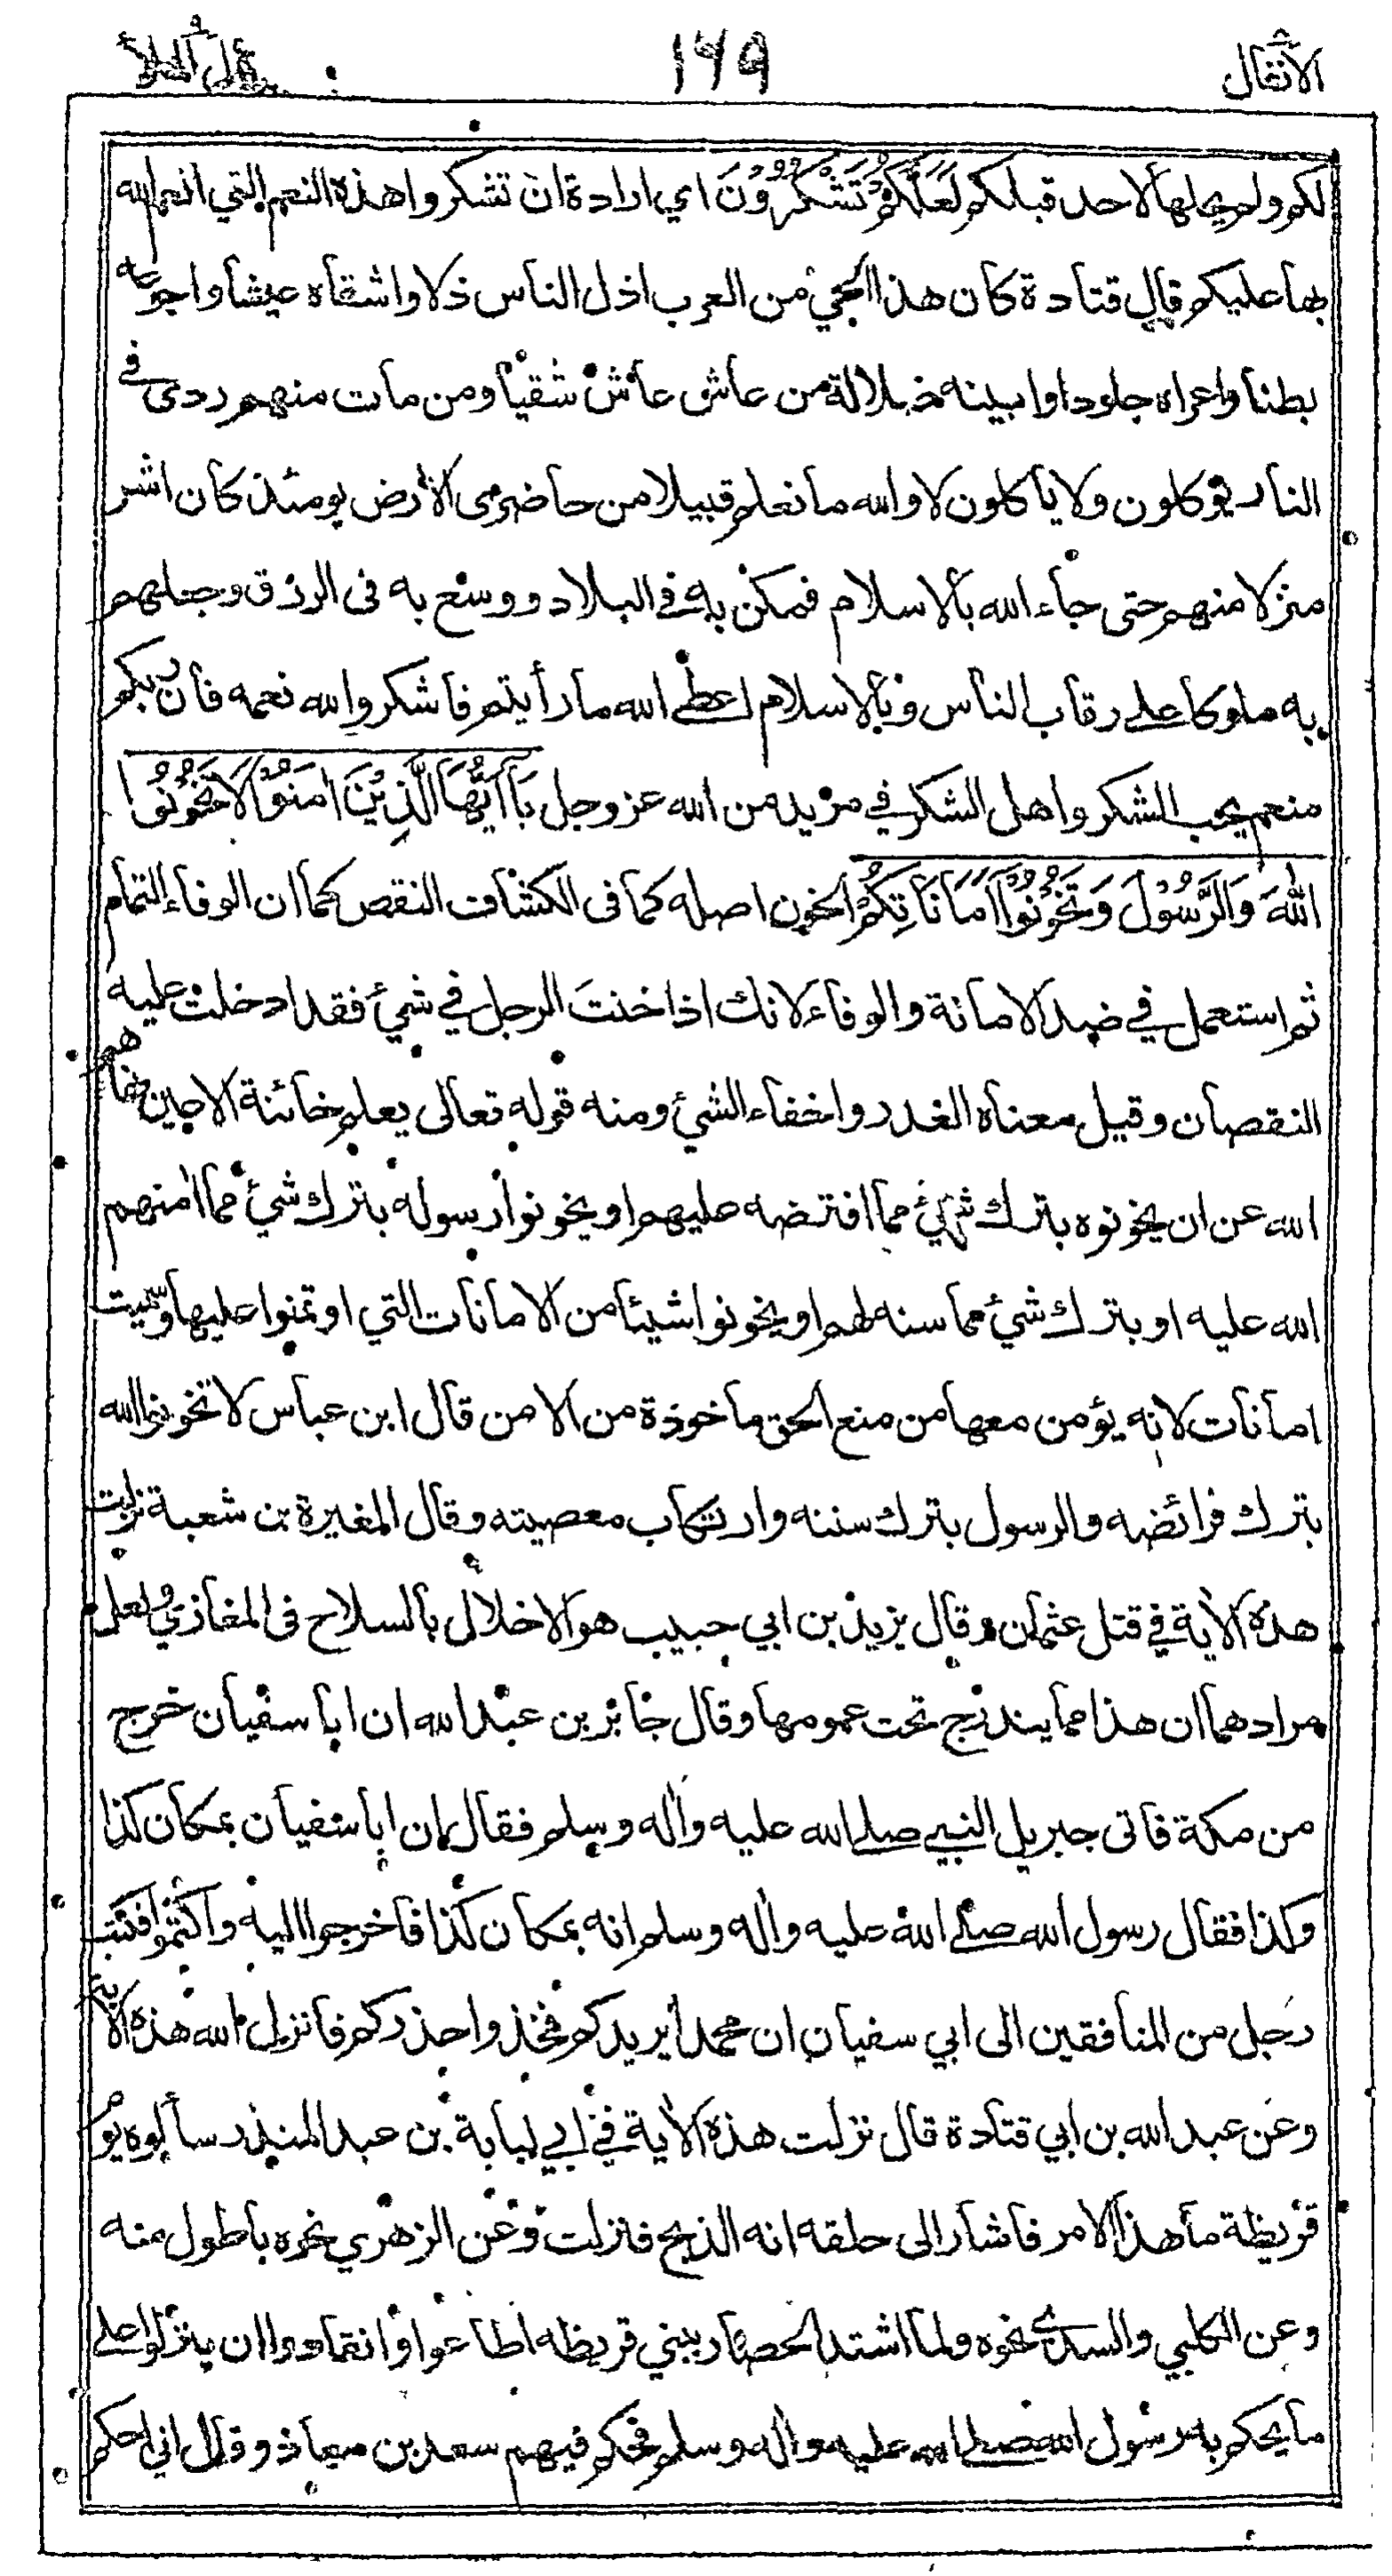 الأنفال ١٦٩ قال الملأ
لكم ولم يحلها لاحد قبلكم لَعَلَّكُمْ تَشْكُرُوْنَ اي ارادة ان تشكروا هذه النعم التي انعم الله
بها عليكم قال قتادة كان هذا الحي من العرب اذل الناس ذلا واشقاه عيشا واجوعه
بطنا واعراه جلودا وابينه ضلالة من عاش عاش شقيا ومن مات منهم ردى في
النار يؤكلون ولا يأكلون لا والله ما نعلم قبيلا من حاضرى الأرض يومئذ كان اشر
منزلا منهم حتى جاء الله بالاسلام فمكن به في البلاد ووسع به فى الرزق وجعلهم
به ملوكا على رقاب الناس وبالاسلام اعطى الله ما رأيتم فاشكروا لله نعمه فان ربكم
منعم يحب الشكر واهل الشكر في مزيد من الله عز وجل يَا أَيُّهَا الَّذِيْنَ اٰمَنُوْا لَا تَخُوْنُوا
اللهَ وَالرَّسُوْلَ وَتَخُوْنُوْا أَمَانَاتِكُمْ الخون اصله كما فى الكشاف النقص كما ان الوفاء التمام
ثم استعمل في ضد الامانة والوفاء لانك اذا خنتَ الرجل في شيء فقد ادخلت عليه
النقصان وقيل معناه الغدر واخفاء الشيء ومنه قوله تعالى يعلم خائنة الاعين نهاهم
الله عن ان يخونوه بترك شيء مما افترضه عليهم او يخونوا رسوله بترك شيء مما امنهم
الله عليه او بترك شيء مما سنه لهم او يخونوا شيئا من الامانات التي اوتمنوا عليها وسميت
امانات لانه يؤمن معها من منع الحق ماخوذة من الامن قال ابن عباس لا تخونوا الله
بترك فرائضه والرسول بترك سننه وارتكاب معصيته وقال المغيرة بن شعبة نزلت
هذه الأية في قتل عثمان وقال يزيد بن ابي حبيب هو الاخلال بالسلاح فى المغازي ولعل
مرادهما ان هذا مما يندرج تحت عمومها وقال جابر بن عبد الله ان ابا سفيان خرج
من مكة فاتى جبريل النبي صلى الله عليه واٰله وسلم فقال ان ابا سفيان بمكان كذا
وكذا فقال رسول الله صلى الله عليه واٰله وسلم انه بمكان كذا فاخرجوا اليه واكتموا فكتب
رجل من المنافقين الى ابي سفيان ان محمدا يريدكم فخذوا حذركم فانزل الله هذه الأية
وعن عبد الله بن ابي قتادة قال نزلت هذه الأية في ابي لبابة بن عبد المنذر سألوه يوم
قريظة ما هذا الامر فاشار الى حلقه انه الذبح فنزلت وعن الزهري نحوه باطول منه
وعن الكلبي والسدي نحوه ولما اشتد الحصار ببني قريظه اطاعوا وانقادوا ان ينزلوا على
ما يحكم به رسول الله صلى الله عليه واٰله وسلم فحكم فيهم سعد بن معاذ وقال اني احكم